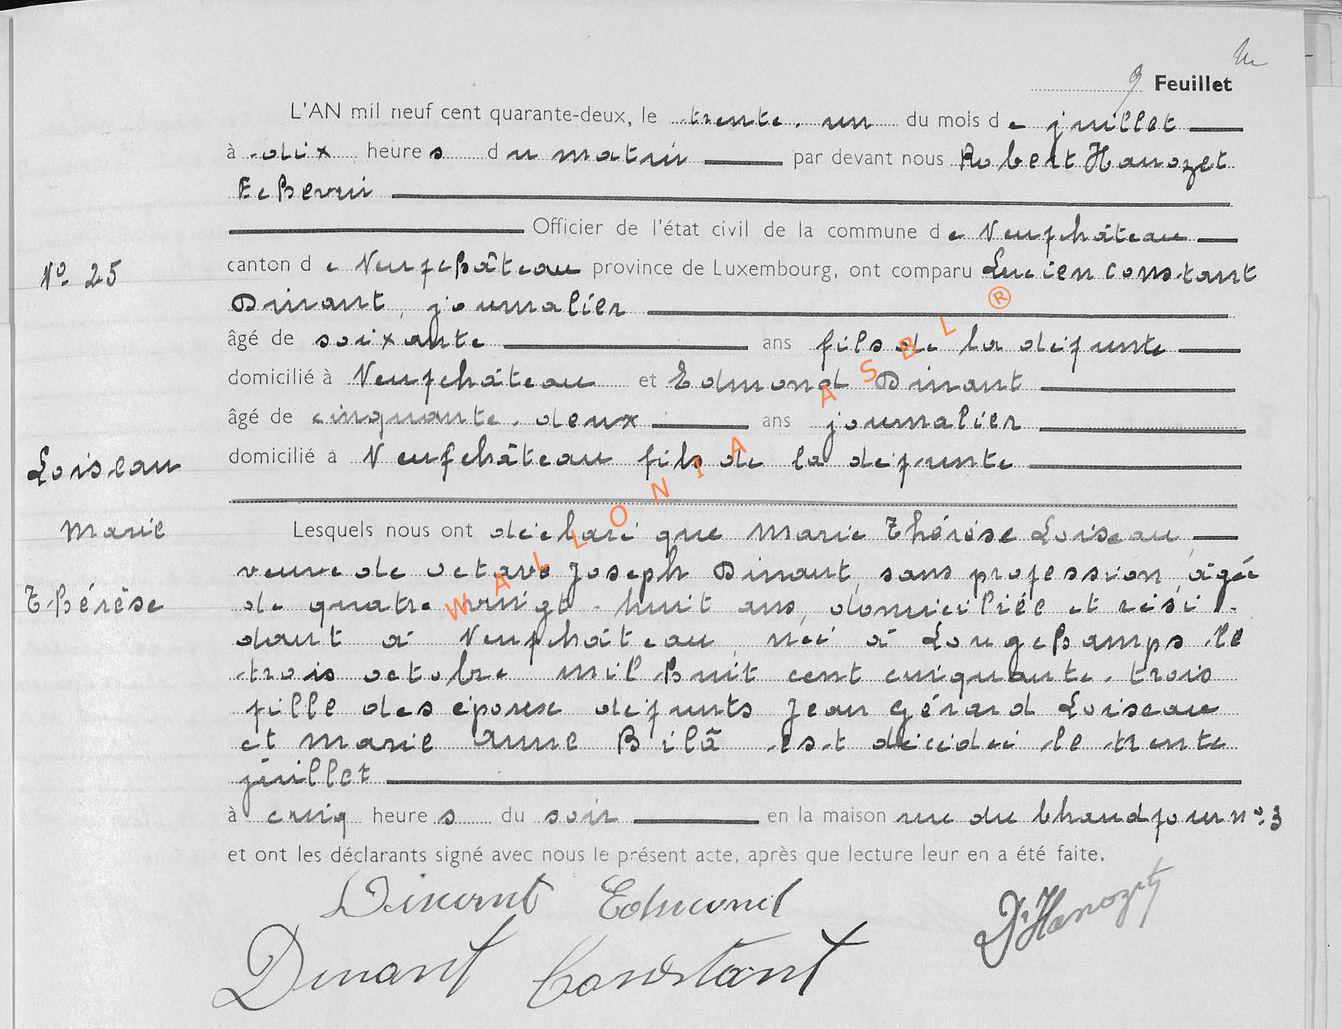 9 Feuillet
L'AN mil neuf cent quarante-deux, le trente-un du mois de juillet
à dix heures du matin par devant nous Robert Hanozet
Echevin
Officier de l'état civil de la commune de Neufchâteau
N° 25
canton de Neufchâteau province de Luxembourg, ont comparu Lucien Constant
Dinant, journalier
âgé de soixante ans fils de la défunte
domicilié à Neufchâteau et Edmond Dinant
âgé de cinquante-deux ans journalier
domicilié à Neufchâteau fils de la défunte
Loiseau
Marie
Thérèse
Lesquels nous ont déclaré que Marie Thérèse Loiseau,
veuve de Octave Joseph Dinant, sans profession, âgée
de quatre vingt-huit ans, domiciliée et rési-
dant à Neufchâteau, née à Longchamps le
trois octobre mil huit cent cinquante-trois
fille des époux défunts Jean Gérard Loiseau
et Marie Anne Bilâ est décédée le trente
juillet
à cinq heures du soir en la maison rue du Chaudfour n°3
et ont les déclarants signé avec nous le présent acte, après que lecture leur en a été faite.
Dinant Edmond
Dr Hanozet
Dinant Constant
WALLONIA ASBL ®